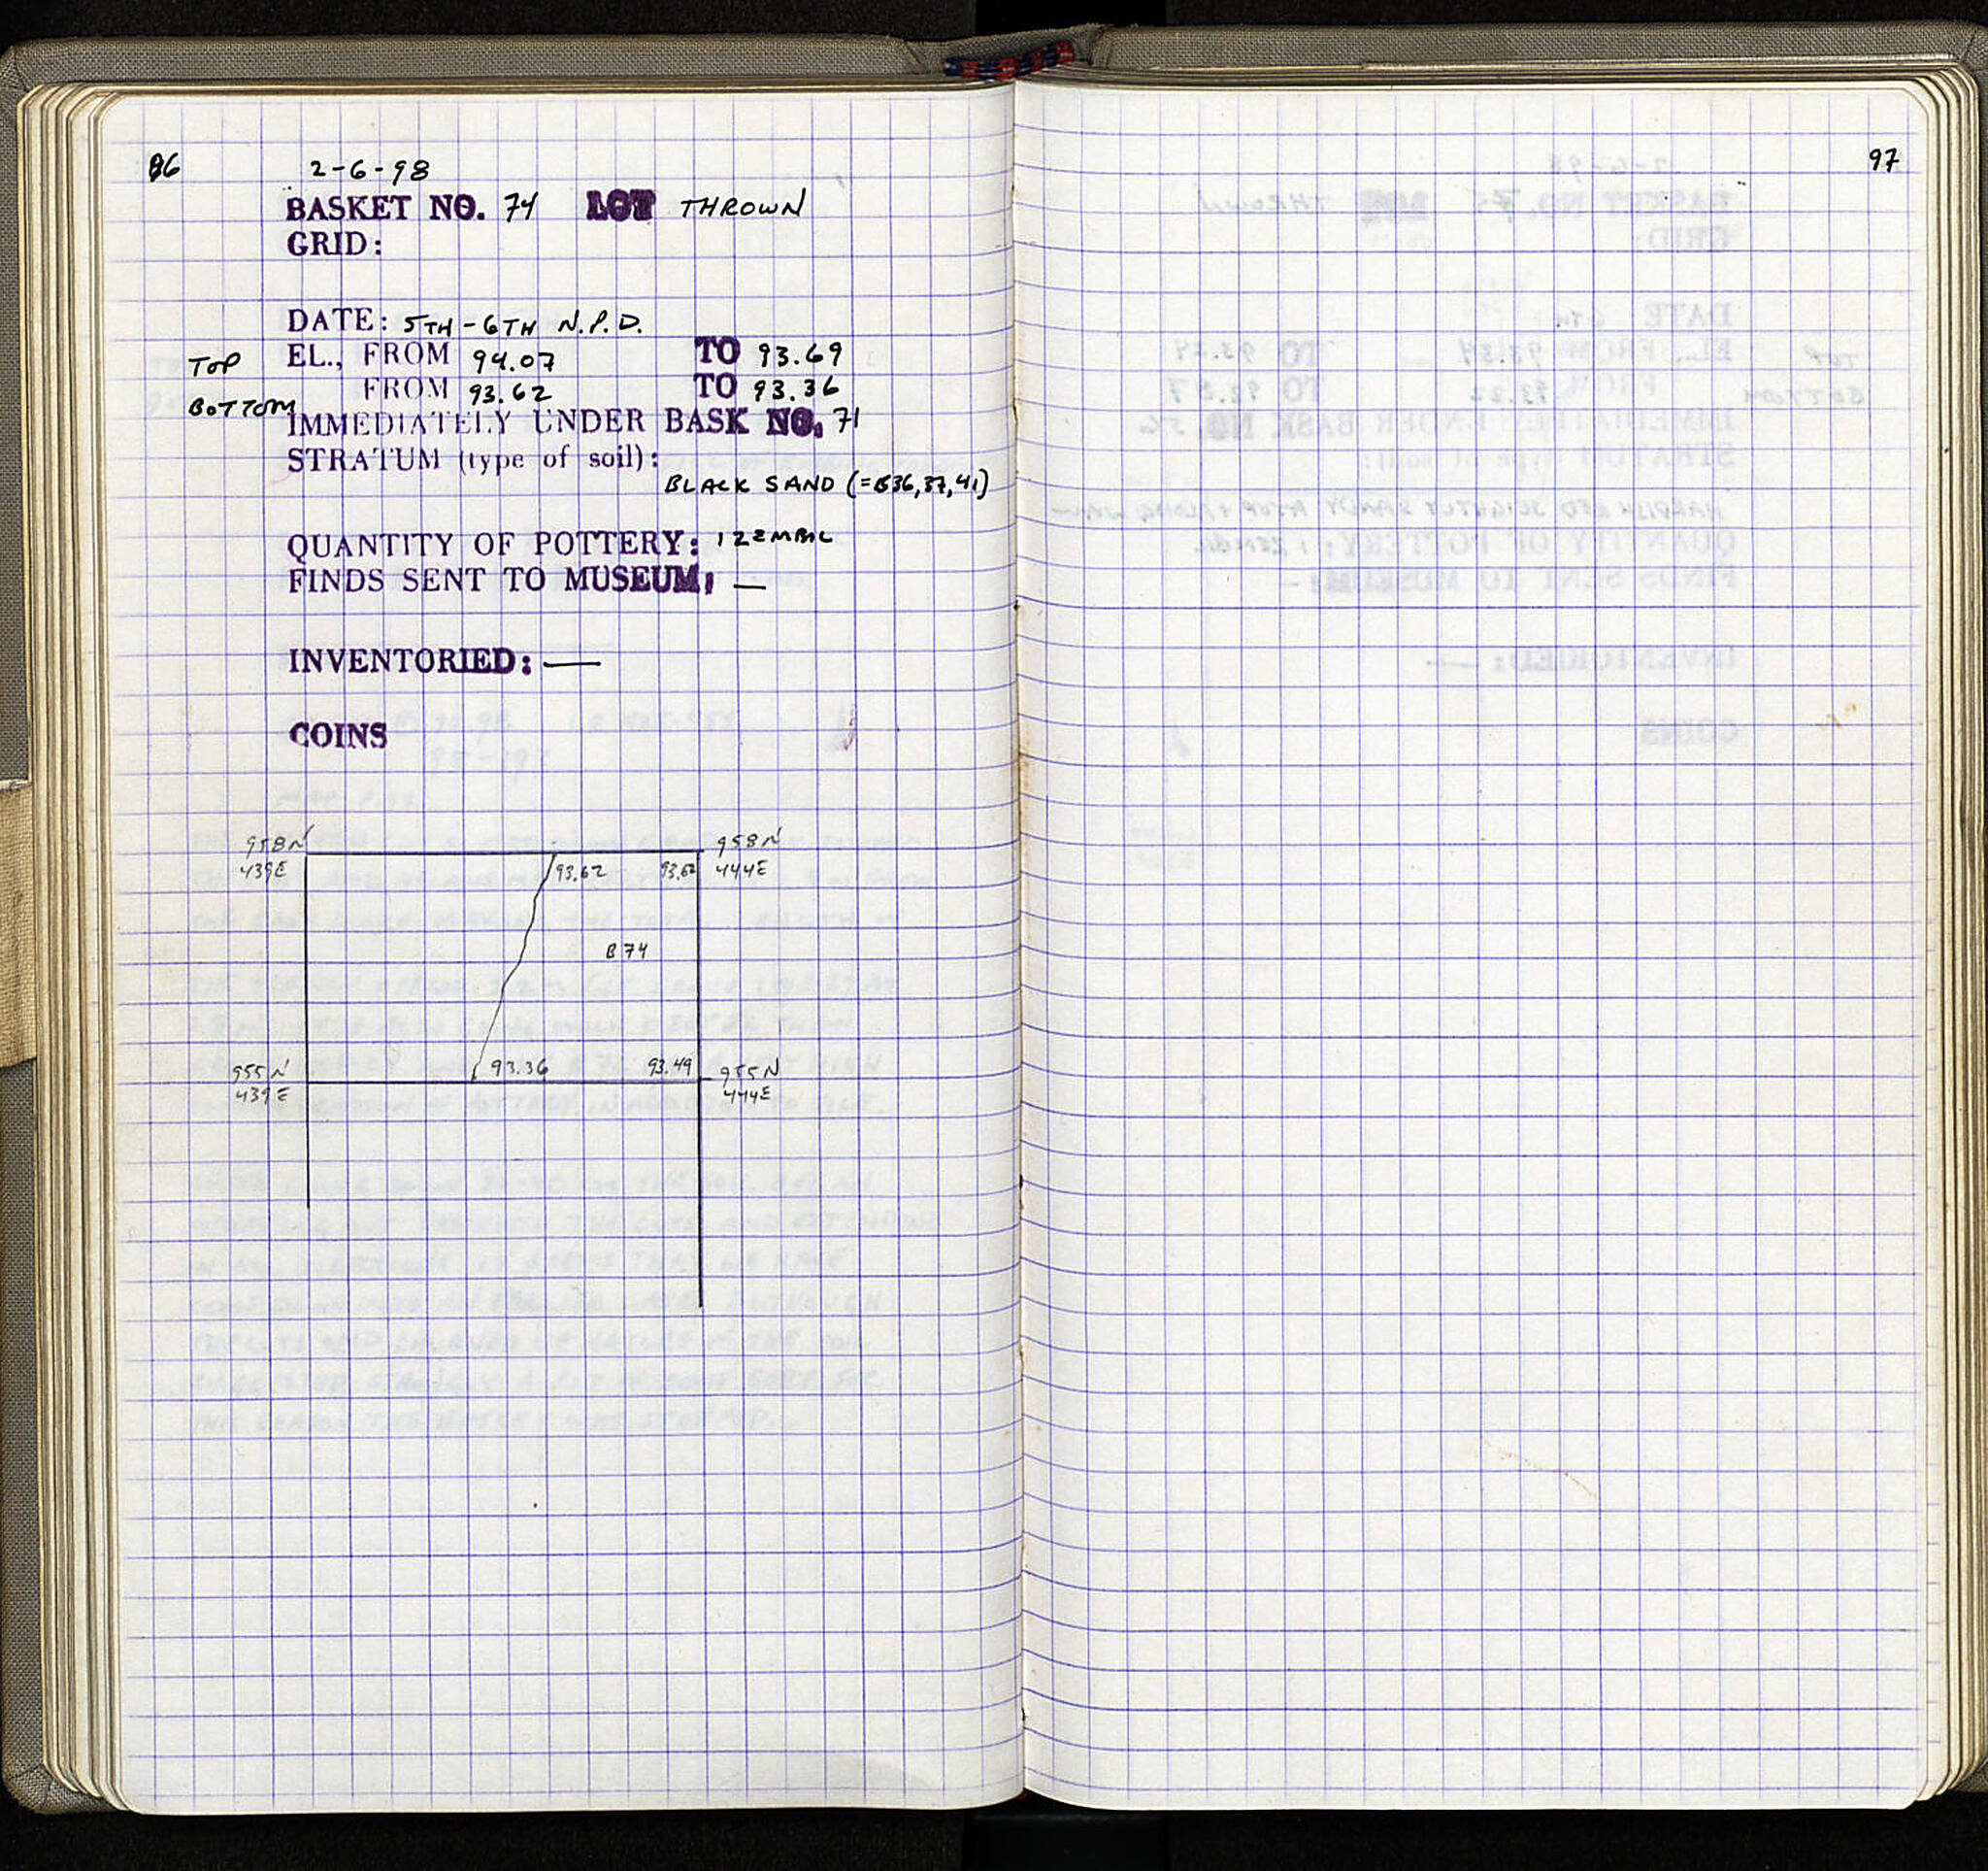 86
2-6-98
BASKET NO. 74 LOT THROWN
GRID:
DATE: 5TH - 6TH N.P.D.
TOP EL., FROM 94.07 TO 93.69
BOTTOM FROM 93.62 TO 93.36
IMMEDIATELY UNDER BASK NO. 71
STRATUM (type of soil):
BLACK SAND (=B36,37,41)
QUANTITY OF POTTERY: 1 ZEMBIL
FINDS SENT TO MUSEUM: —
INVENTORIED: —
COINS
958N 958N
439E 93.62 93.62 444E
B74
955N 93.36 93.49 955N
439E 444E
97